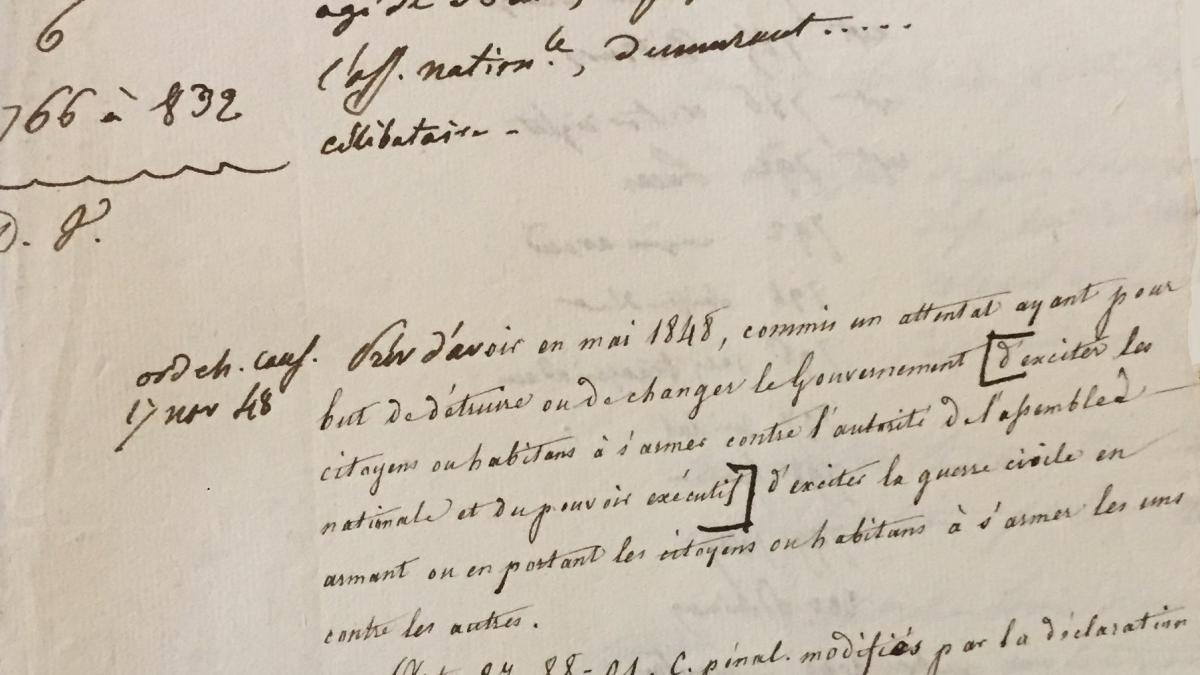 6
766 à 832
agé de
l'ass. nation.le, demeurant .....
célibataire -
D. J.
ord ch. cons.
17 nov 48
Prév d'avoir en mai 1848, commis un attentat ayant pour
but de détruire ou de changer le Gouvernement [d'exciter les
citoyens ou habitans à s'armer contre l'autorité de l'assemblée
nationale et du pouvoir exécutif] d'exciter la guerre civile en
armant ou en portant les citoyens ou habitans à s'armer les uns
contre les autres.
87. 88-91. C. pénal. modifiés par la déclaration